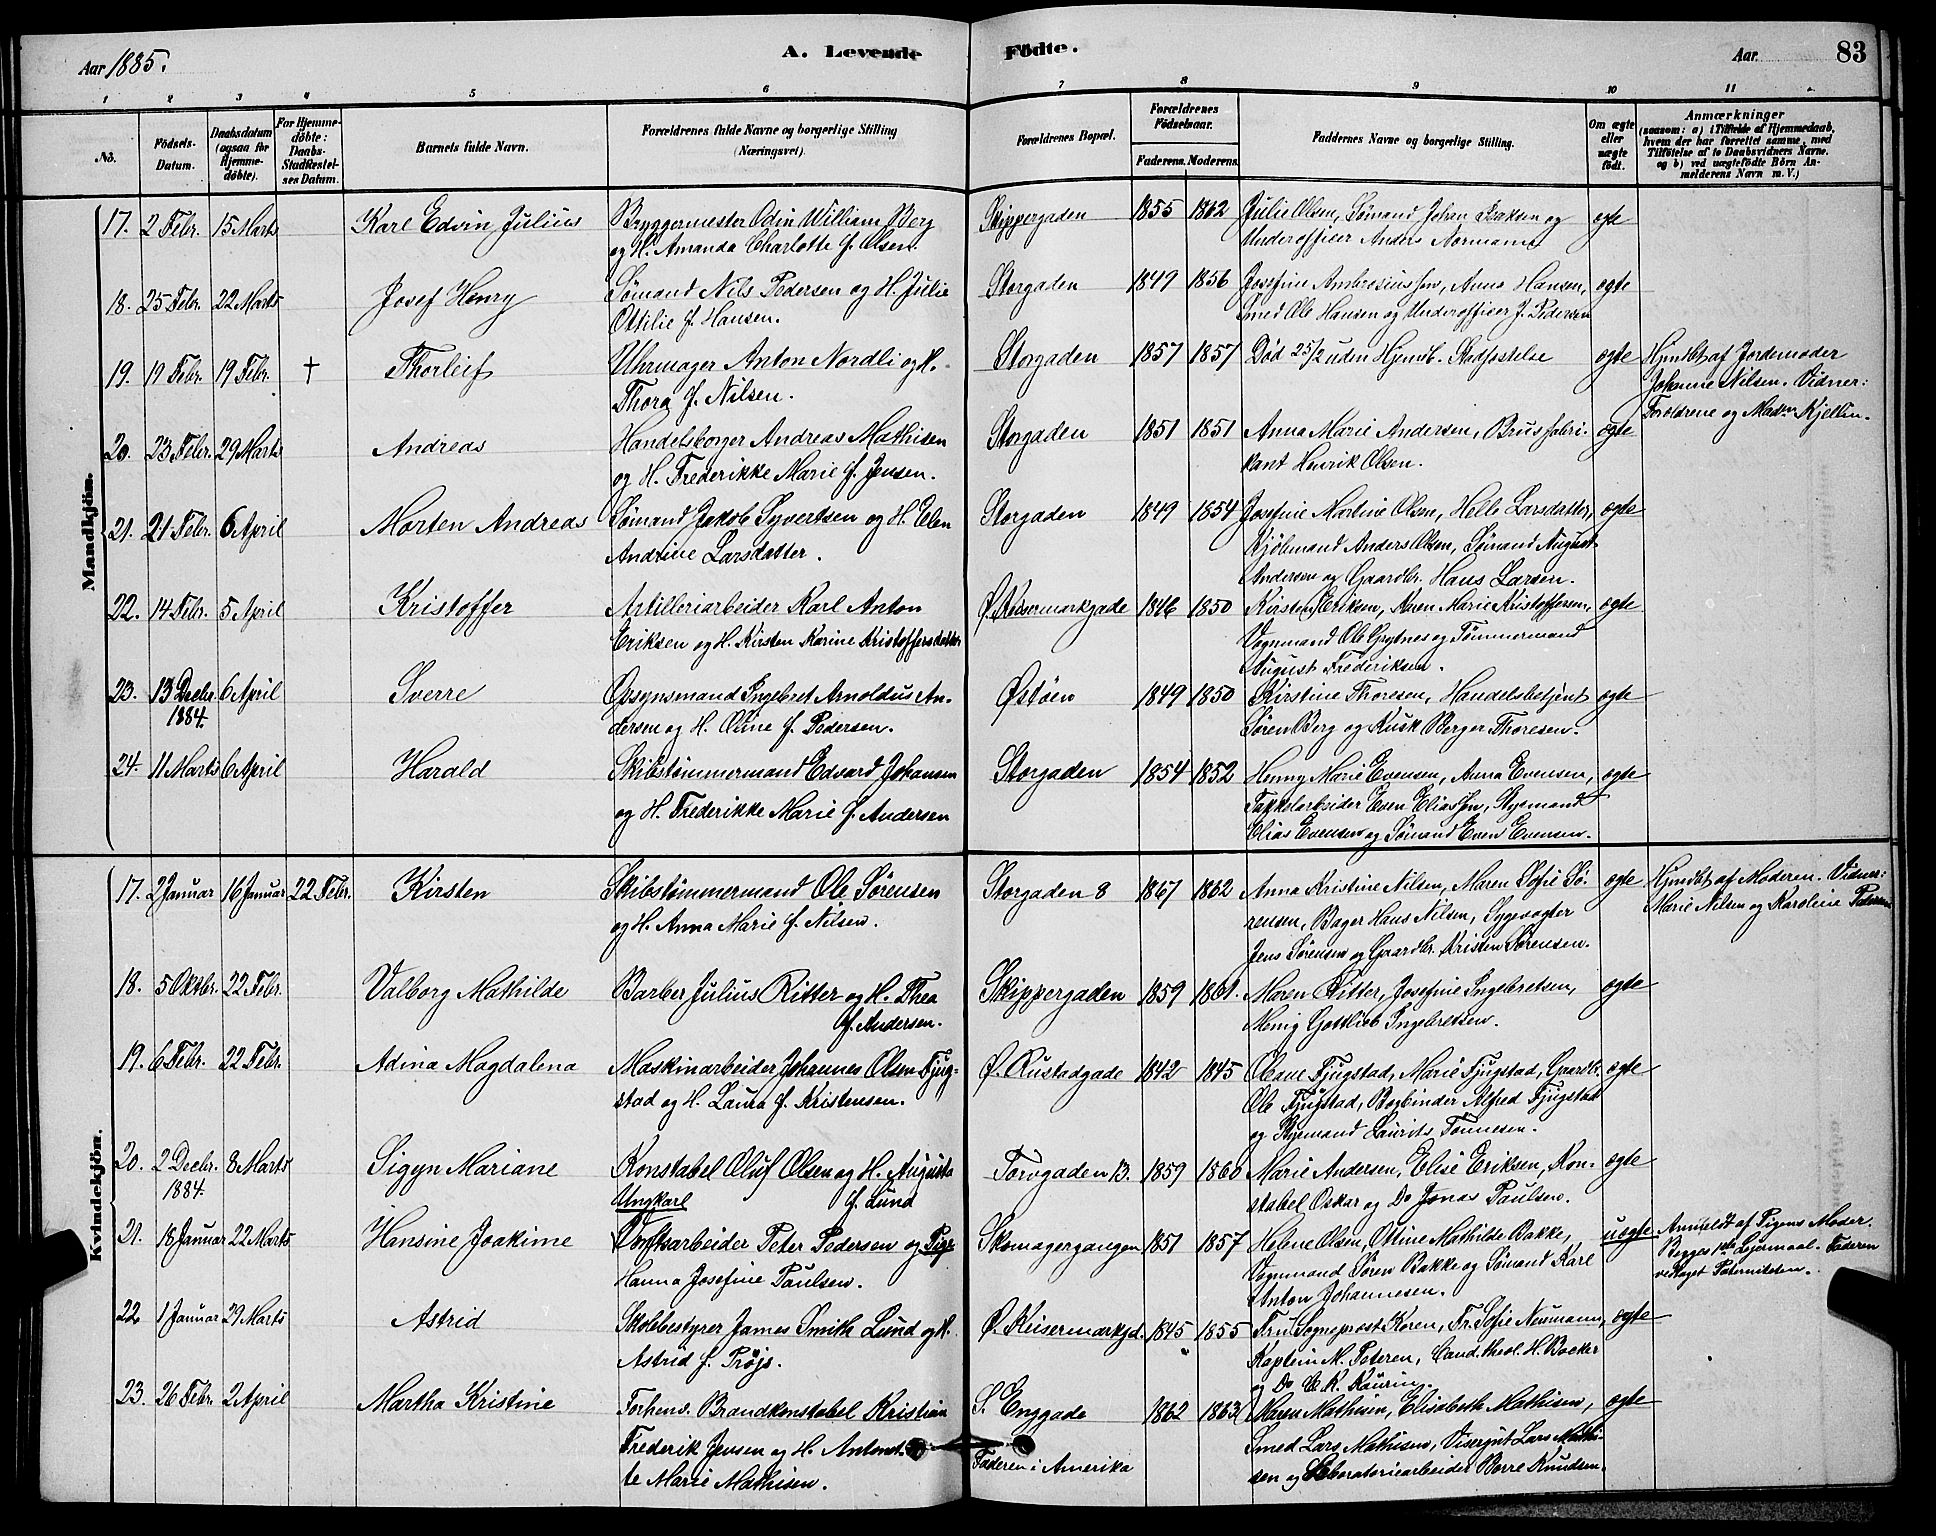 Aar 1885.
A. Levende Födte.
Aar
83
1 2 3 4 5 6 7 8 9 10 11
No.
Födsels-Datum.
Daabsdatum (ogsaa for Hjemme-döbte).
For Hjemme-döbte: Daabs-Stadfæstel-ses Datum.
Barnets fulde Navn.
Forældrenes fulde Navne og borgerlige Stilling (Næringsvei).
Forældrenes Bopæl.
Forældrenes Födselsaar.
Faderens. Moderens.
Faddernes Navne og borgerlige Stilling.
Om ægte eller uægte födt.
Anmærkninger
(saasom: a) i Tilfælde af Hjemmedaab, hvem der har forrettet samme, med Tilföielse af to Daabsvidners Navne. og b) ved uægtefödte Börn An-melderens Navn m. V.)
Mandkjön.
17. 2 Febr. 15 Marts Karl Edvin Julius Bryggermester Odin William Berg Skippergaden 1855 1862 Julie Olsen, Sømand Johan Isaksen og ægte
og H. Amanda Charlotte f. Olsen Underofficer Anders Normann
18. 25 Febr. 22 Marts Josef Henry Sømand Nils Pedersen og H. Julie Storgaden 1849 1856 Josefine Ambrosiussen, Anna Hansen, ægte
Ottilie f. Hansen. Smed Ole Hansen og Underofficer J. Pedersen
19. 19 Febr. 19 Febr. † Thorleif Uhrmager Anton Nordli og H. Storgaden 1857 1857 Død 25/2 uden Hjmdb. Stadfæstelse ægte Hjmdbt af Jordemoder
Thora f. Nilsen. Johanne Nilsen. Vidner:
Forældrene og Madm Kjellin.
20. 23 Febr. 29 Marts Andreas Handelsborger Andreas Mathisen Storgaden 1851 1851 Anna Marie Andersen, Brusfabri- ægte
og H. Frederikke Marie f. Jensen. kant Henrik Olsen.
21. 21 Febr. 6 April Morten Andreas Sømand Jakob Syvertsen og H. Elen Storgaden 1849 1854 Josefine Martine Olsen, Helle Larsdatter, ægte
Andrine Larsdatter. Kjøbmand Anders Olsen, Sømand August
Andersen og Gaardbr. Hans Larsen.
22. 14 Febr. 5 April Kristoffer Artilleriarbeider Karl Anton Ø. Keisermarkgade 1846 1850 Kirsten Eriksen, Karen Marie Kristoffersen, ægte
Eriksen og H. Kirsten Karine Kristoffersdatter Vognmand Ole Grytnes og Tømmermand
August Frederiksen.
23. 13 Decbr. 6 April Sverre Opsynsmand Ingebret Arnoldus An- Østøen 1849 1850 Kirstine Thoresen, Handelsbetjent ægte
1884. dersen og H. Oline f. Pedersen. Søren Berg og Kusk Berger Thoresen.
24. 11 Marts 6 April Harald Skibstømmermand Edvard Johansen Storgaden 1854 1852 Henny Marie Evensen, Anna Evensen, ægte
og H. Frederikke Marie f. Andersen Takkelarbeider Even Eliassen, Styrmand
Elias Evensen og Sømand Even Evensen.
Kvindekjön.
17. 2 Januar 16 Januar 22 Febr. Kirsten Skibstømmermand Ole Sørensen Storgaden 8 1867 1862 Anna Kristine Nilsen, Maren Sofie Sø- ægte Hjmdbt af Moderen. Vidner:
og H. Anna Marie f. Nilsen. rensen, Bager Hans Nilsen, Sygevogter Marie Nilsen og Karoline Petersen
Jens Sørensen og Gaardbr. Kristen Sørensen.
18. 5 Oktbr. 22 Febr. Valborg Mathilde Barber Julius Ritter og H. Thea Skippergaden 1859 1861. Maren Ritter, Josefine Ingebretsen, ægte
f. Andersen. Menig Gottlieb Ingebretsen.
19. 6 Febr. 22 Febr. Adina Magdalena Maskinarbeider Johannes Olsen Fjug- Ø. Rustadgade 1842 1845 Oleane Fjugstad, Marie Fjugstad, Gaardb. ægte
stad og H. Laura f. Kristensen. Ole Fjugstad, Bogbinder Alfred Fjugstad
og Styrmand Laurits Tønnesen.
20. 2 Decbr. 8 Marts Sigyn Mariane Konstabel Oluf Olsen og H. Augusta Torvgaden 13. 1859 1860 Marie Andersen, Elise Eriksen, Kon- ægte
1884. f. Lund stabel Oskar og Do Jonas Paulsen.
21. 18 Januar 22 Marts Hansine Joakime Ungkarl
Værftsarbeider Peter Pedersen og Pige Skomagergangen 1851 1857 Helene Olsen, Ottine Mathilde Bakke, uægte Anmeldt af Pigens Moder.
Hanna Josefine Paulsen. Vognmand Søren Bakke og Sømand Karl Begges 1ste Leiermaal. Faderen
Anton Johannesen. vedtaget Paterniteten.
22 1 Januar 29 Marts Astrid Skolebestyrer James Smith Lund og H. Ø. Keisermarkgd. 1845 1855 Fru Sogneprost Koren, Fr. Sofie Neumann, ægte
Astrid f. Prøjs. Kaptein M. Petersen, Cand. theol. H. Backer
og Do C. K. Kaurin.
23. 26 Febr. 2 April Martha Kristine Forhenv. Brandkonstabel Kristian S. Enggade 1862 1863 Maren Mathisen, Elisabeth Mathisen, ægte
Frederik Jensen og H. Antonet- Smed Lars Mathisen, Visergut Lars Mathi-
te Marie Mathisen. Faderen i Amerika sen og Laboratoriearbeider Borre Knudsen.